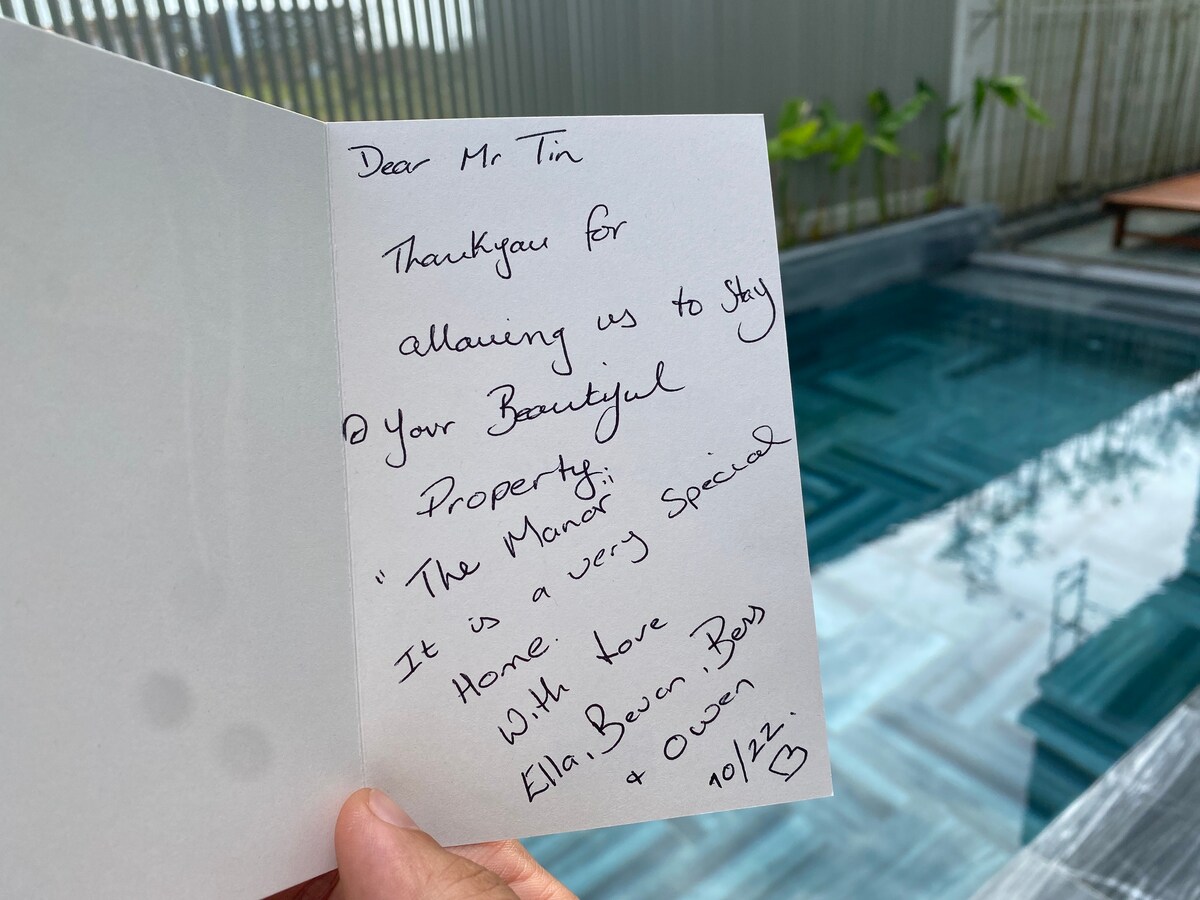 Dear Mr Tin
Thankyou for
allowing us to Stay
@ Your Beautiful
Property.
"The Manor"
It is a very Special
Home.
With Love
Ella, Bevan, Bers
& Owen
10/22.